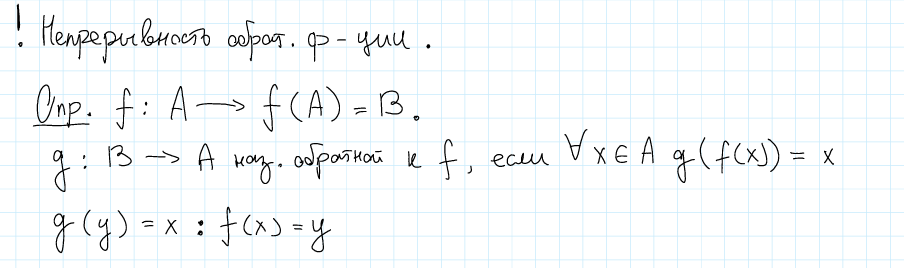 ! Непрерывность обрат. ф-ции.
Опр. f: A → f(A) = B.
g: B → A наз. обратной к f, если ∀x∈A g(f(x)) = x
g(y) = x : f(x) = y